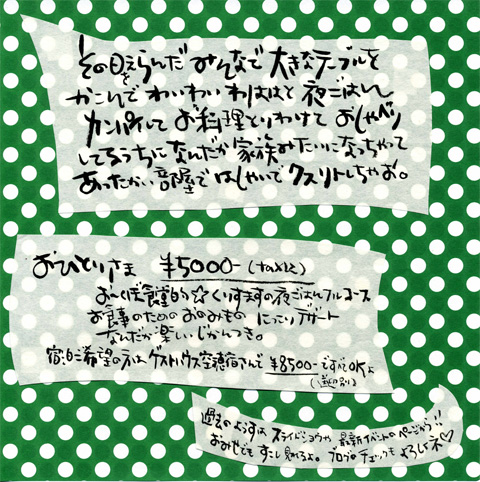 その日えらんだ みんなで 大きなテーブルを
かこんで わいわい わははと 夜ごはん
カンパイして お料理とりわけて おしゃべり
してるうちに なんだか 家族みたいになっちゃって
あったかい 部屋で はしゃいで クスリとしちゃお。
おひとりさま ¥5000-(tax込)
おくぼ食堂的 ☆ くりすますの夜ごはんフルコース
お食事のための おのみもの にっこりデザート
なんだか楽しいじかんつき。
宿泊ご希望の方は ゲストハウス空穂宿さんで ¥8500-ですべてOKよ
過去のようすは スライドショウや 最新イベントのページから!!
おみせでも すこし見れるよ。ブログの チェックも よろしくネ♡